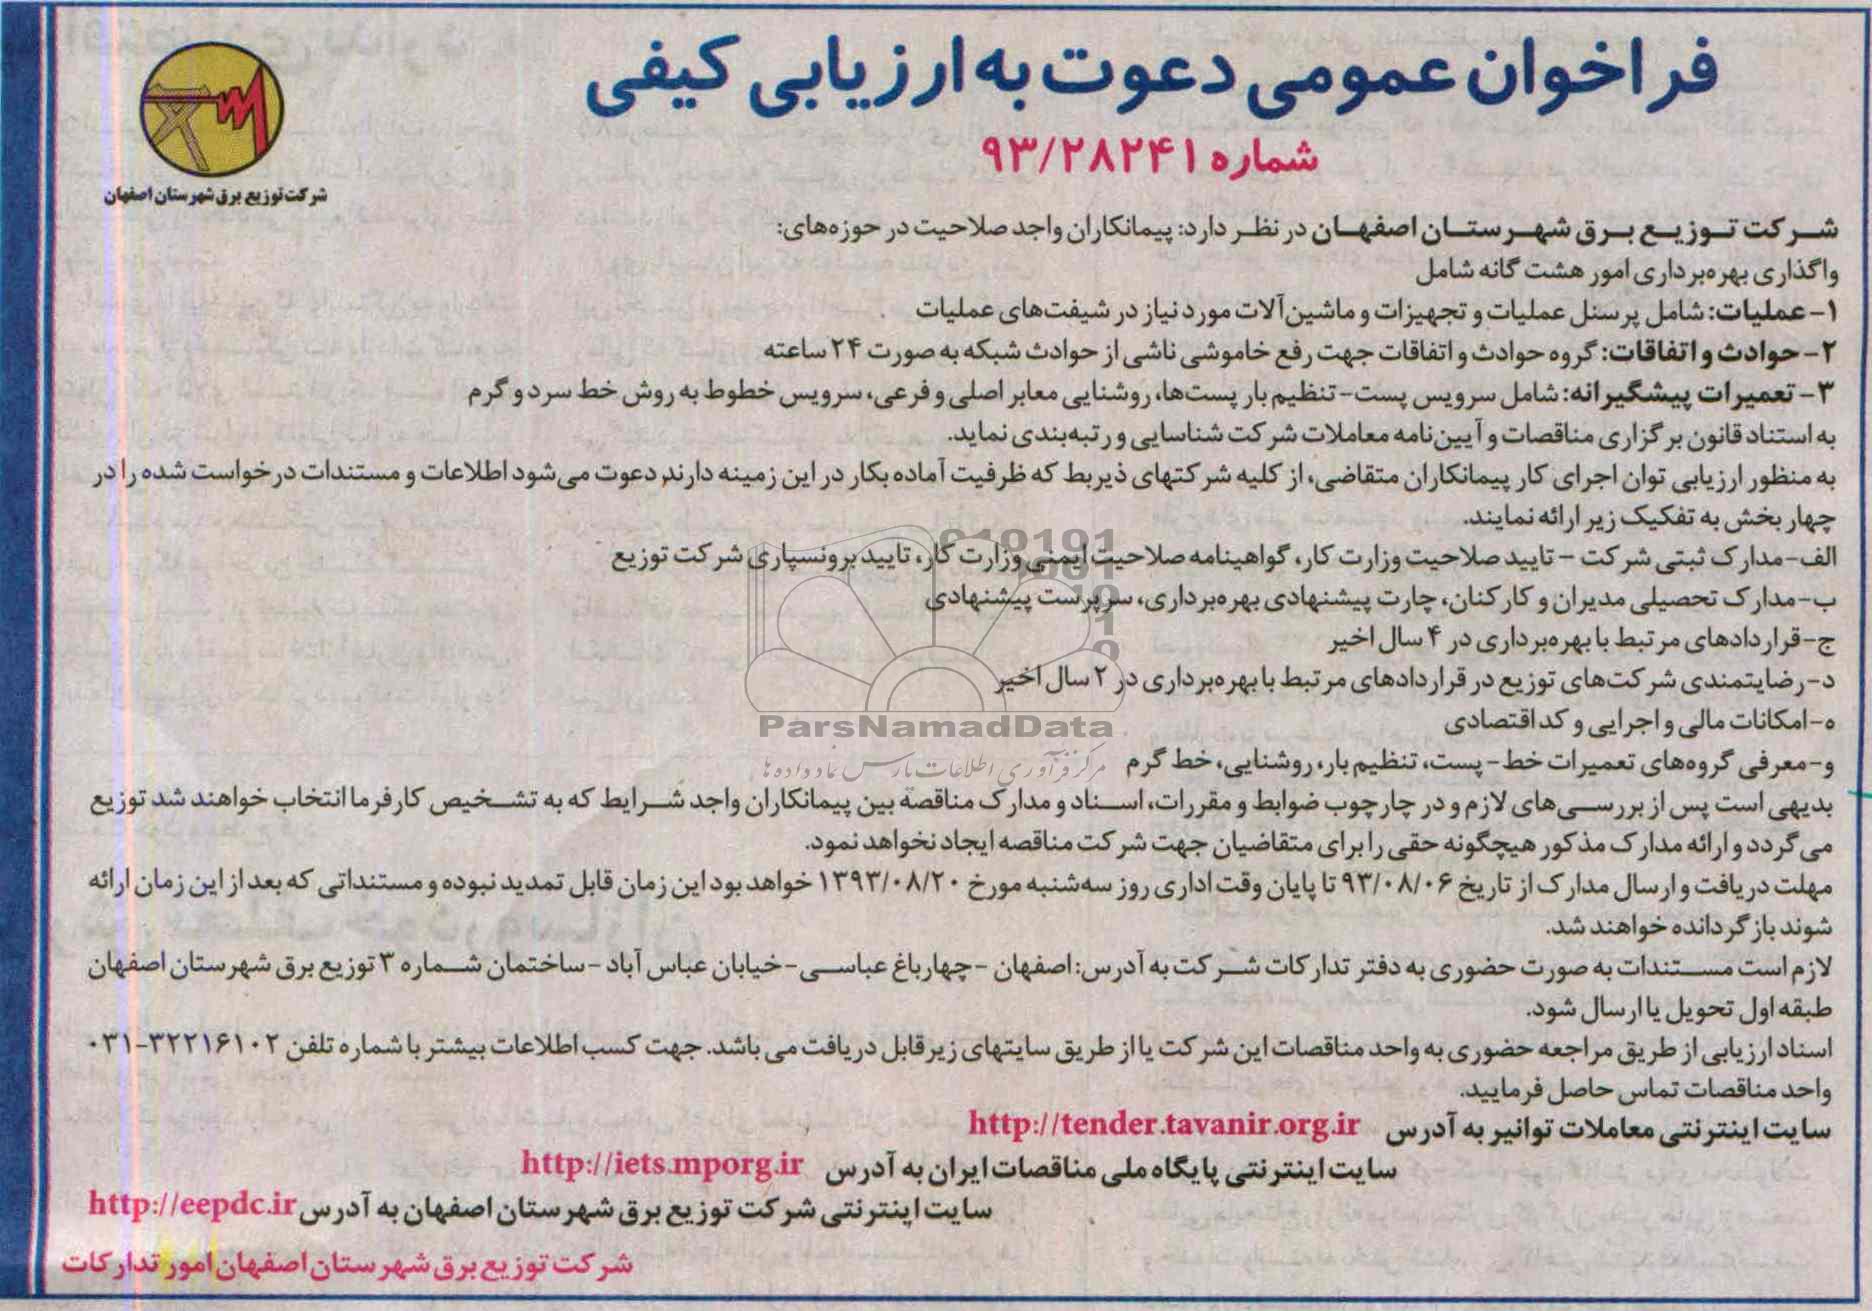 فراخوان عمومی دعوت به ارزیابی کیفی
شماره ۹۳/۲۸۲۴۱
شرکت توزیع برق شهرستان اصفهان
شرکت توزیع برق شهرستان اصفهان در نظر دارد: پیمانکاران واجد صلاحیت در حوزه‌های:
واگذاری بهره‌برداری امور هشت گانه شامل
۱- عملیات: شامل پرسنل عملیات و تجهیزات و ماشین‌آلات مورد نیاز در شیفت‌های عملیات
۲- حوادث و اتفاقات: گروه حوادث و اتفاقات جهت رفع خاموشی ناشی از حوادث شبکه به صورت ۲۴ ساعته
۳- تعمیرات پیشگیرانه: شامل سرویس پست- تنظیم بار پست‌ها، روشنایی معابر اصلی و فرعی، سرویس خطوط به روش خط سرد و گرم
به استناد قانون برگزاری مناقصات و آیین‌نامه معاملات شرکت شناسایی و رتبه‌بندی نماید.
به منظور ارزیابی توان اجرای کار پیمانکاران متقاضی، از کلیه شرکتهای ذیربط که ظرفیت آماده بکار در این زمینه دارند، دعوت می‌شود اطلاعات و مستندات درخواست شده را در
چهار بخش به تفکیک زیر ارائه نمایند.
الف- مدارک ثبتی شرکت – تایید صلاحیت وزارت کار، گواهینامه صلاحیت ایمنی وزارت کار، تایید برونسپاری شرکت توزیع
ب- مدارک تحصیلی مدیران و کارکنان، چارت پیشنهادی بهره‌برداری، سرپرست پیشنهادی
ج- قراردادهای مرتبط با بهره‌برداری در ۴ سال اخیر
د- رضایتمندی شرکت‌های توزیع در قراردادهای مرتبط با بهره‌برداری در ۲ سال اخیر
ه- امکانات مالی و اجرایی و کد اقتصادی
ParsNamadData
مرکز فرآوری اطلاعات پارس نماد داده ها
و- معرفی گروه‌های تعمیرات خط- پست، تنظیم بار، روشنایی، خط گرم
بدیهی است پس از بررسی‌های لازم و در چارچوب ضوابط و مقررات، اسناد و مدارک مناقصه بین پیمانکاران واجد شرایط که به تشخیص کارفرما انتخاب خواهند شد توزیع
می گردد و ارائه مدارک مذکور هیچگونه حقی را برای متقاضیان جهت شرکت مناقصه ایجاد نخواهد نمود.
مهلت دریافت و ارسال مدارک از تاریخ ۹۳/۰۸/۰۶ تا پایان وقت اداری روز سه‌شنبه مورخ ۱۳۹۳/۰۸/۲۰ خواهد بود این زمان قابل تمدید نبوده و مستنداتی که بعد از این زمان ارائه
شوند بازگردانده خواهند شد.
لازم است مستندات به صورت حضوری به دفتر تدارکات شرکت به آدرس: اصفهان - چهارباغ عباسی- خیابان عباس آباد - ساختمان شماره ۳ توزیع برق شهرستان اصفهان
طبقه اول تحویل یا ارسال شود.
اسناد ارزیابی از طریق مراجعه حضوری به واحد مناقصات این شرکت یا از طریق سایتهای زیر قابل دریافت می باشد. جهت کسب اطلاعات بیشتر با شماره تلفن ۳۲۲۱۶۱۰۲-۰۳۱
واحد مناقصات تماس حاصل فرمایید.
سایت اینترنتی معاملات توانیر به آدرس http://tender.tavanir.org.ir
سایت اینترنتی پایگاه ملی مناقصات ایران به آدرس http://iets.mporg.ir
سایت اینترنتی شرکت توزیع برق شهرستان اصفهان به آدرس http://eepdc.ir
شرکت توزیع برق شهرستان اصفهان امور تدارکات